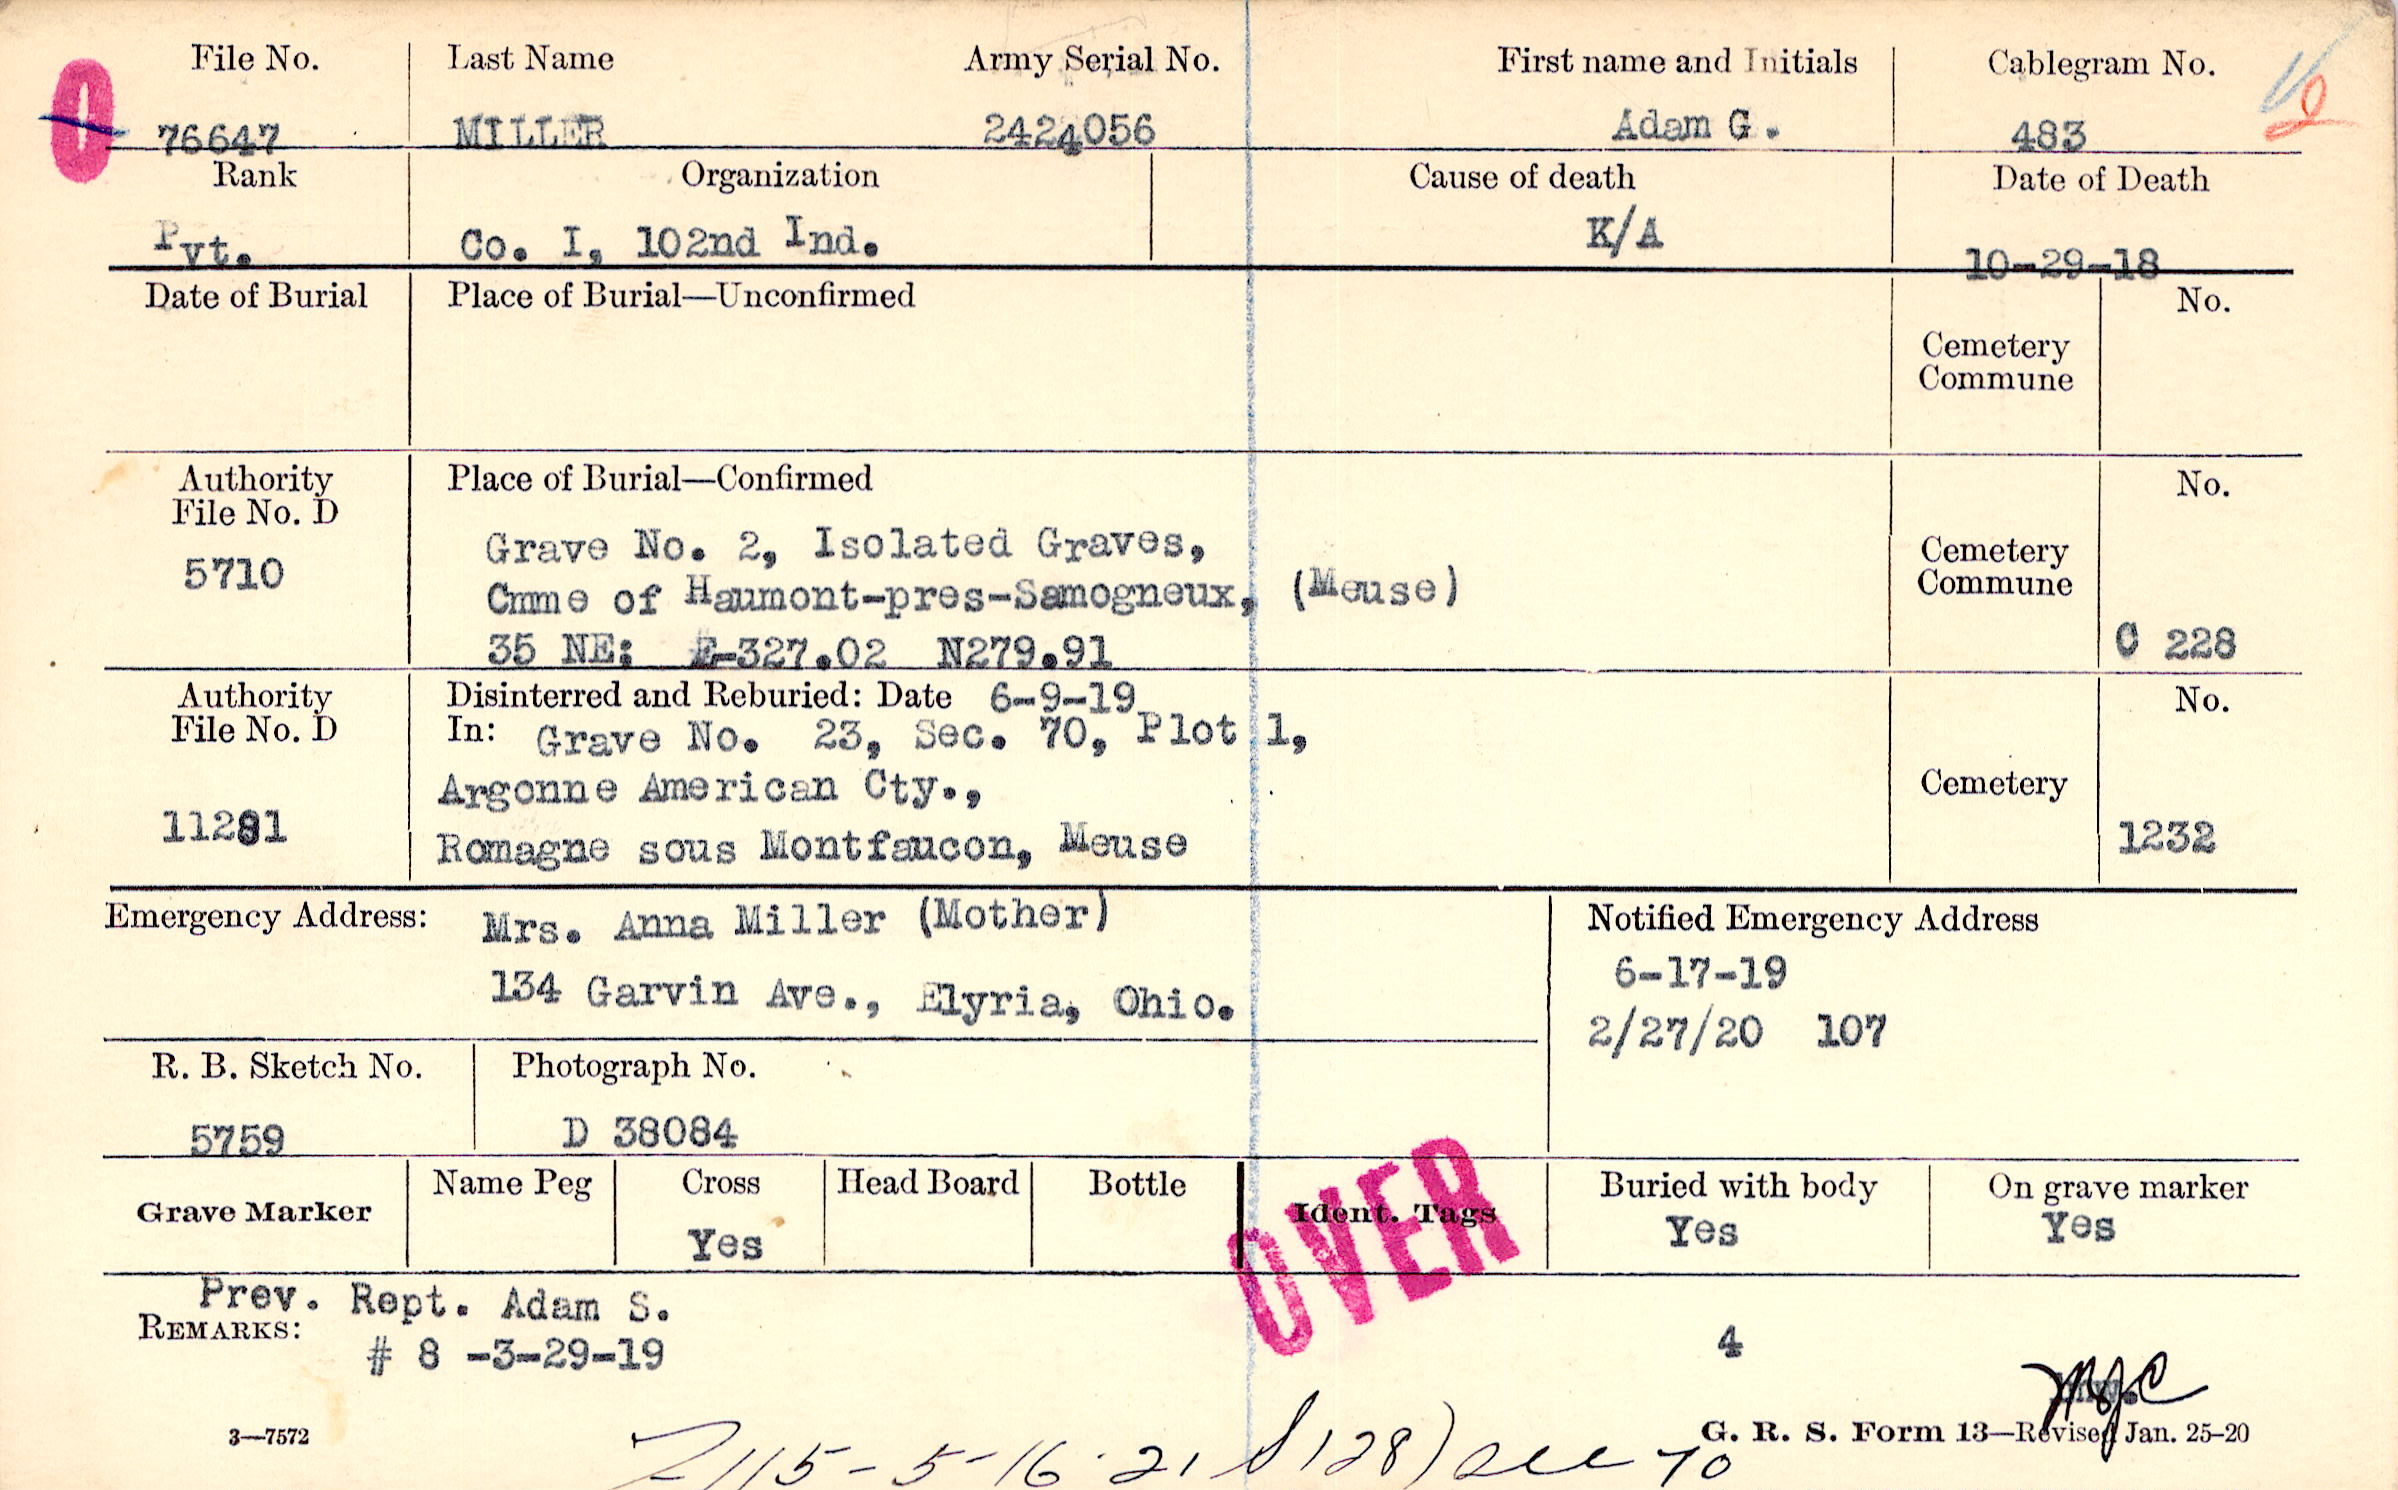 File No. Last Name Army Serial No. First name and Initials Cablegram No.
0 76647 MILLER 2424056 Adam G. 483
Rank Organization Cause of death Date of Death
Pvt. Co. I, 102nd Ind. K/A 10-29-18
Date of Burial Place of Burial—Unconfirmed No.
Cemetery
Commune
Authority Place of Burial—Confirmed No.
File No. D
5710 Grave No. 2, Isolated Graves, Cemetery
Cmme of Haumont-pres-Samogneux, (Meuse) Commune
35 NE: E-327.02 N279.91 C 228
Authority Disinterred and Reburied: Date 6-9-19 No.
File No. D In: Grave No. 23, Sec. 70, Plot 1,
Argonne American Cty., Cemetery
11281 Romagne sous Montfaucon, Meuse 1232
Emergency Address: Mrs. Anna Miller (Mother) Notified Emergency Address
134 Garvin Ave., Elyria, Ohio. 6-17-19
2/27/20 107
R. B. Sketch No. Photograph No.
5759 D 38084
Grave Marker Name Peg Cross Head Board Bottle Ident. Tags Buried with body On grave marker
Yes Yes Yes
OVER
Prev. Rept. Adam S.
REMARKS:
# 8 -3-29-19 4
3—7572 G. R. S. Form 13—Revised Jan. 25-20
115-5-16-21 128)